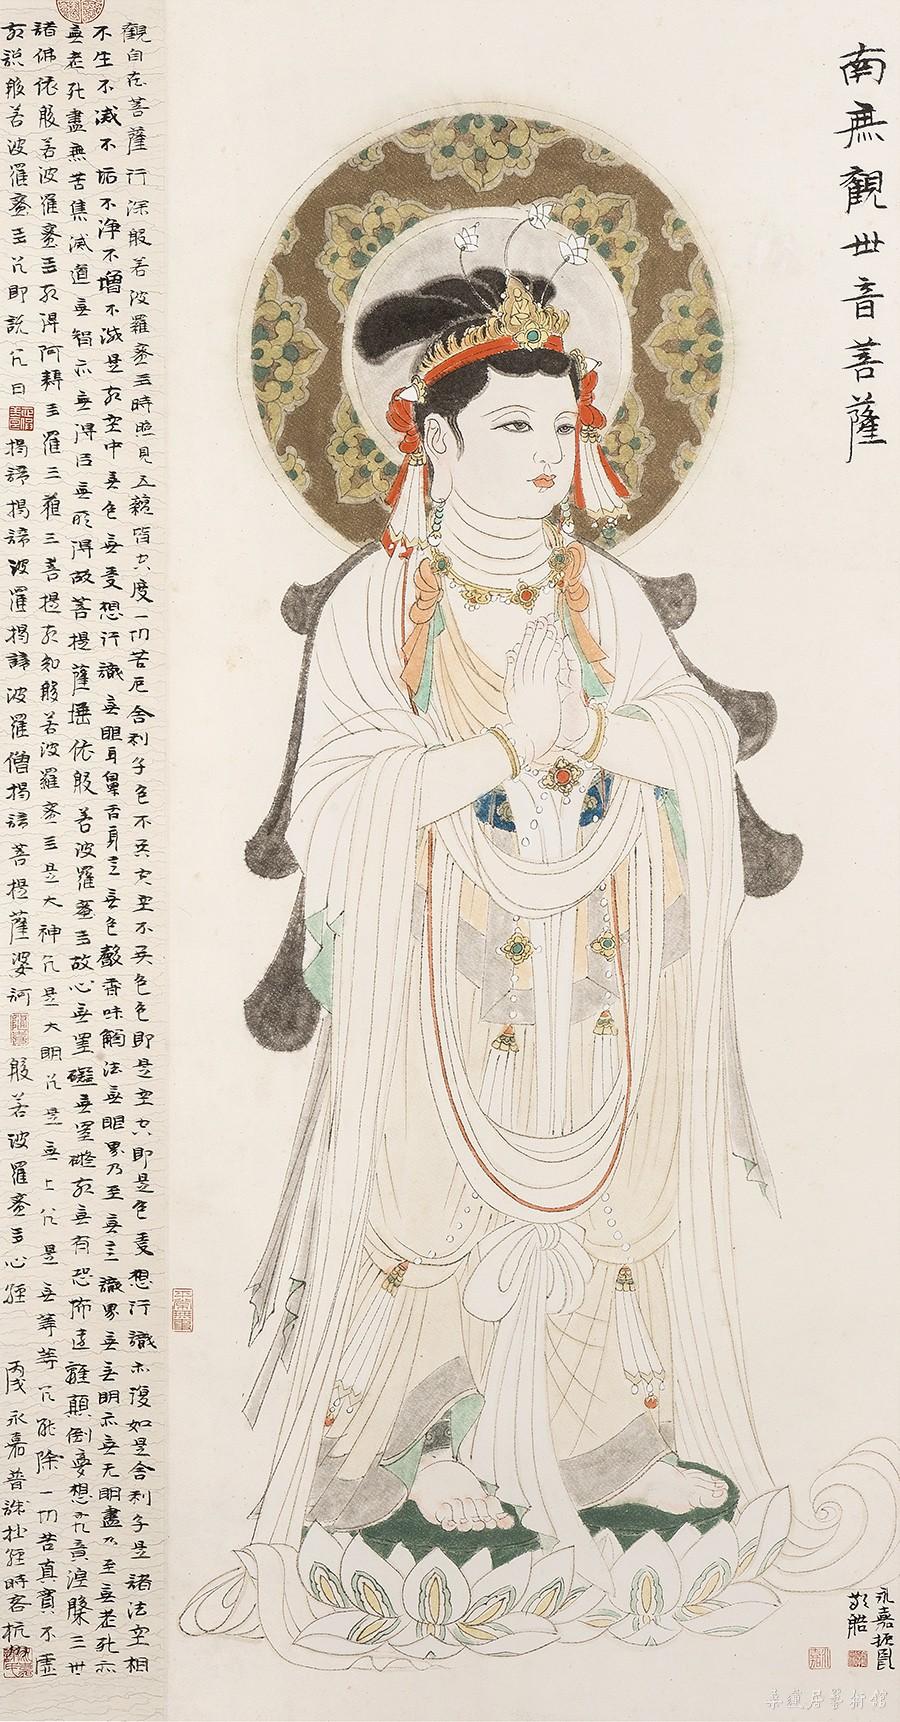 南無觀世音菩薩
永嘉
觀自在菩薩行深般若波羅蜜多時照見五蘊皆空度一切苦厄舍利子色不異空空不異色色即是空空即是色受想行識亦復如是舍利子是諸法空相
不生不滅不垢不淨不增不減是故空中無色無受想行識無眼耳鼻舌身意無色聲香味觸法無眼界乃至無意識界無無明亦無无明盡乃至無老死亦
無老死盡無苦集滅道無智亦無得以無所得故菩提薩埵依般若波羅蜜多故心無罣礙無罣礙故無有恐怖遠離顛倒夢想究竟涅槃三世
諸佛依般若波羅蜜多故得阿耨多羅三藐三菩提故知般若波羅蜜多是大神咒是大明咒是無上咒是無等等咒能除一切苦真實不虛
故說般若波羅蜜多咒即說咒曰揭諦揭諦波羅揭諦波羅僧揭諦菩提薩婆訶般若波羅蜜多心經丙戌永嘉普誠抄經時客杭州
桑蓮居藝術館